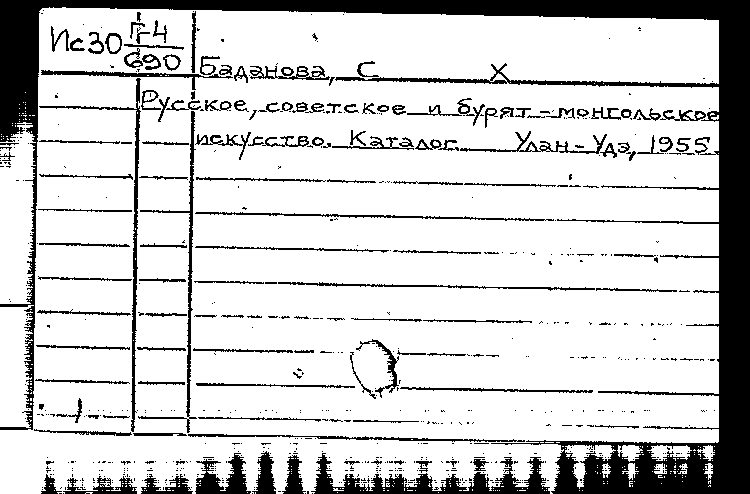 Ис30 Г-4
690
Баданова, С Х
Русское, советское и бурят-монгольское
искусство. Каталог. Улан-Удэ, 1955.
1